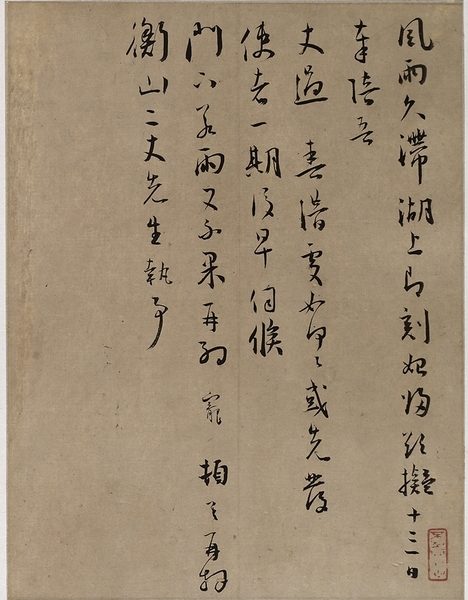 風雨久滯湖上即刻始歸擬十三日
奉陪吾
丈過 潛處如何々或先發
使者一期須早伺候
門下若雨又不果再約 寵 頓首再拜
衡山二丈先生執事